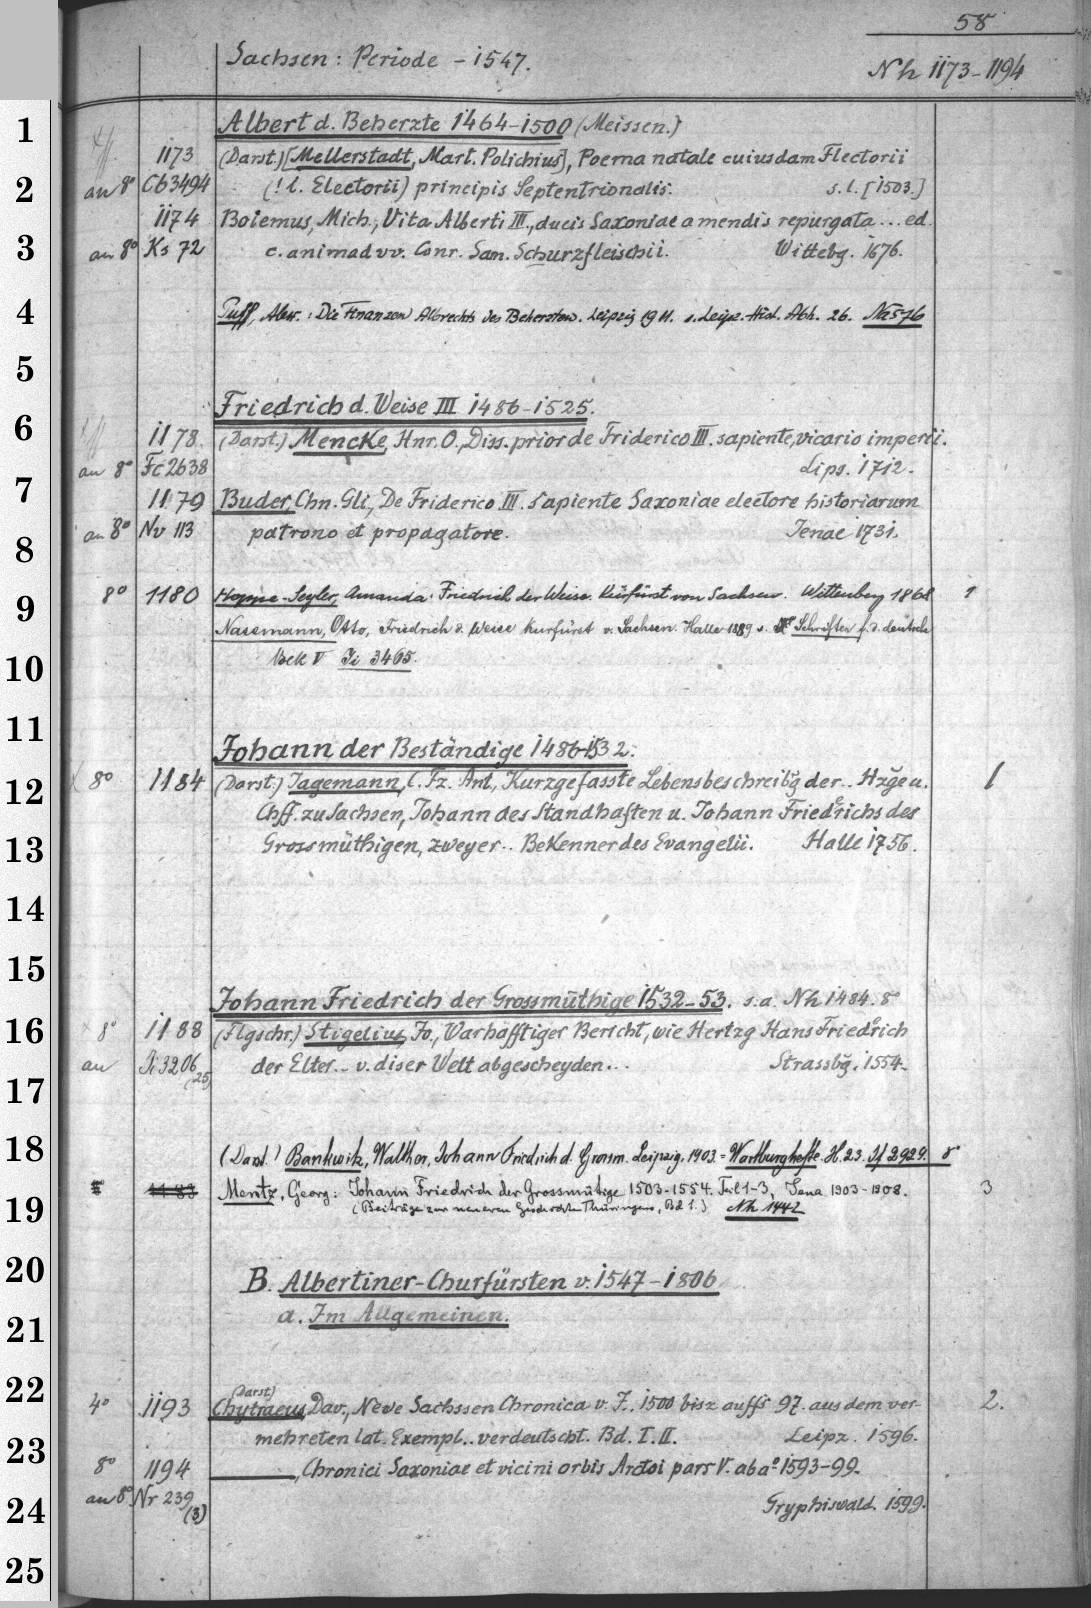 58
Sachsen: Periode - 1547.
Nh 1173-1194
1
Albert d. Beherzte 1464-1500 (Meissen.)
1173 (Darst.) [Mellerstadt, Mart. Polichius], Poema natale cuiusdam Flectorii
2
an 8° Cb 3494 (! l. Electorii) principis Septentrionalis. s. l. [1503.]
1174 Boiemus, Mich., Vita Alberti III., ducis Saxoniae a mendis repurgata ... ed.
3
an 8° Ks 72 c. animadvv. Conr. Sam. Schurzfleischii. Wittebg. 1676.
4
Puff, Alex.: Die Finanzen Albrechts des Beherzten. Leipzig 1911. s. Leipz. Hist. Abh. 26. Na 576
5
Friedrich d. Weise III 1486-1525.
6
1178. (Darst.) Mencke, Hnr. O., Diss. prior de Friderico III. sapiente, vicario imperii.
an 8° Fc 2638 Lips. 1712.
7
1179 Buder, Chn. Gli., De Friderico III. sapiente Saxoniae electore historiarum
8
an 8° Nv 113 patrono et propagatore. Jenae 1731.
9
8° 1180 Hoppe-Seyler, Amanda: Friedrich der Weise. Kurfürst von Sachsen. Wittenberg 1868 1
Nasemann, Otto, Friedrich d. Weise Kurfürst v. Sachsen. Halle 1889 s. Schriften f. d. deutsche
10
Volk V Ji 3465.
11
Johann der Beständige 1486-1532.
12
8° 1184 (Darst.) Jagemann, C. Fz. Ant., Kurzgefasste Lebensbeschreibg der.. Hzge u. 1
Chff. zu Sachsen, Johann des Standhaften u. Johann Friedrichs des
13
Grossmüthigen, zweyer.. Bekenner des Evangelii. Halle 1756.
14
15
Johann Friedrich der Grossmüthige 1532-53. s. a. Nh 1484. 8°
16
8° 1188 (Flgschr.) Stigelius, Jo., Warhafftiger Bericht, wie Hertzg Hans Friedrich
an Ji 3206 (25) der Elter... v. diser Welt abgescheyden... Strassbg. 1554.
17
18
(Darst.) Bankwitz, Walther, Johann Friedrich d. Grossm. Leipzig. 1903. = Wartburghefte. H. 23. Jf 2929. 8°
1183 Mentz, Georg: Johann Friedrich der Grossmütige 1503-1554. Teil 1-3, Jena 1903-1908. 3
19
(Beiträge zur neueren Geschichte Thüringens, Bd 1.) Nh 1442
20
B. Albertiner-Churfürsten v. 1547-1806
21
a. Im Allgemeinen.
22
(Darst)
4° 1193 Chytraeus, Dav., Newe Sachssen Chronica v. J.. 1500 bisz auffs 97. aus dem ver- 2.
mehreten lat. Exempl.. verdeutscht. Bd. I. II. Leipz. 1596.
23
8° 1194 ———, Chronici Saxoniae et vicini orbis Arctoi pars V. ab a° 1593-99.
24
an 8° Nr 239 (3) Gryphiswald. 1599.
25